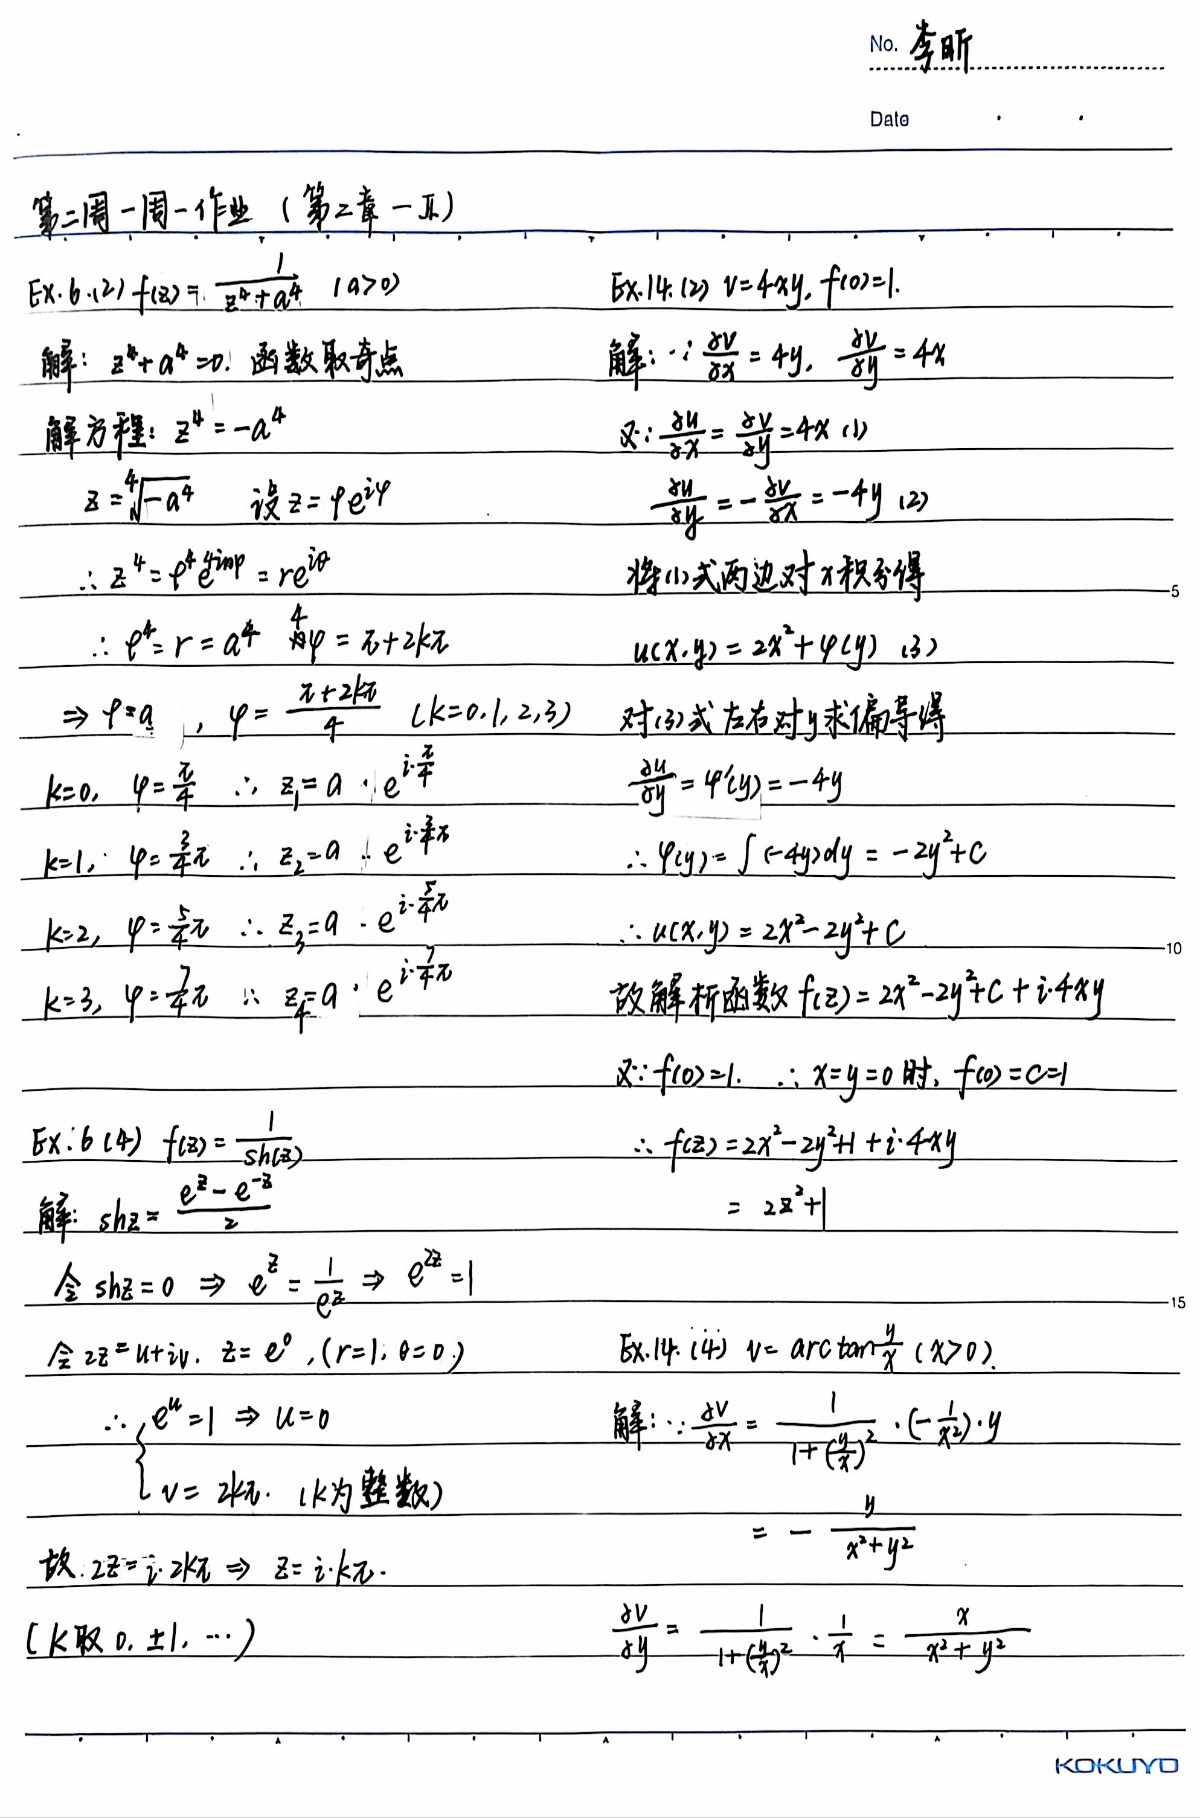 No. 李昕
Date
第二周-周一作业 (第二章-五)
Ex.6.(2) f(z) = 1/(z⁴+a⁴) (a>0)
解: z⁴+a⁴=0. 函数取奇点
解方程: z⁴ = -a⁴
z = ⁴√(-a⁴) 设 z = ρe^{iφ}
∴ z⁴ = ρ⁴e^{4iφ} = re^{iθ}
∴ ρ⁴ = r = a⁴ 4φ = π+2kπ
⇒ ρ=a, φ = (π+2kπ)/4 (k=0,1,2,3)
k=0, φ=π/4 ∴ z₁=a·e^{i·π/4}
k=1, φ=3/4π ∴ z₂=a·e^{i·3/4π}
k=2, φ=5/4π ∴ z₃=a·e^{i·5/4π}
k=3, φ=7/4π ∴ z₄=a·e^{i·7/4π}
Ex.6(4) f(z) = 1/sh(z)
解: shz = (e^z - e^{-z})/2
令 shz=0 ⇒ e^z = 1/e^z ⇒ e^{2z}=1
令 2z=u+iv. z=e⁰, (r=1, θ=0.)
∴ { e^u=1 ⇒ u=0
v=2kπ. (k为整数)
故. 2z=i·2kπ ⇒ z=i·kπ.
(k取 0, ±1, …)
Ex.14.(2) v=4xy, f(0)=1.
解: ∵ ∂v/∂x = 4y, ∂v/∂y = 4x
又∵ ∂u/∂x = ∂v/∂y = 4x (1)
∂u/∂y = -∂v/∂x = -4y (2)
将(1)式两边对x积分得
u(x,y) = 2x²+φ(y) (3)
对(3)式左右对y求偏导得
∂u/∂y = φ'(y) = -4y
∴ φ(y) = ∫(-4y)dy = -2y²+C
∴ u(x,y) = 2x²-2y²+C
故解析函数 f(z) = 2x²-2y²+C+i·4xy
又∵ f(0)=1. ∴ x=y=0时, f(0)=C=1
∴ f(z) = 2x²-2y²+1+i·4xy
= 2z²+1
Ex.14.(4) v=arctan y/x (x>0).
解: ∵ ∂v/∂x = 1/(1+(y/x)²)·(-1/x²)·y
= - y/(x²+y²)
∂v/∂y = 1/(1+(y/x)²)·1/x = x/(x²+y²)
5
10
15
KOKUYO